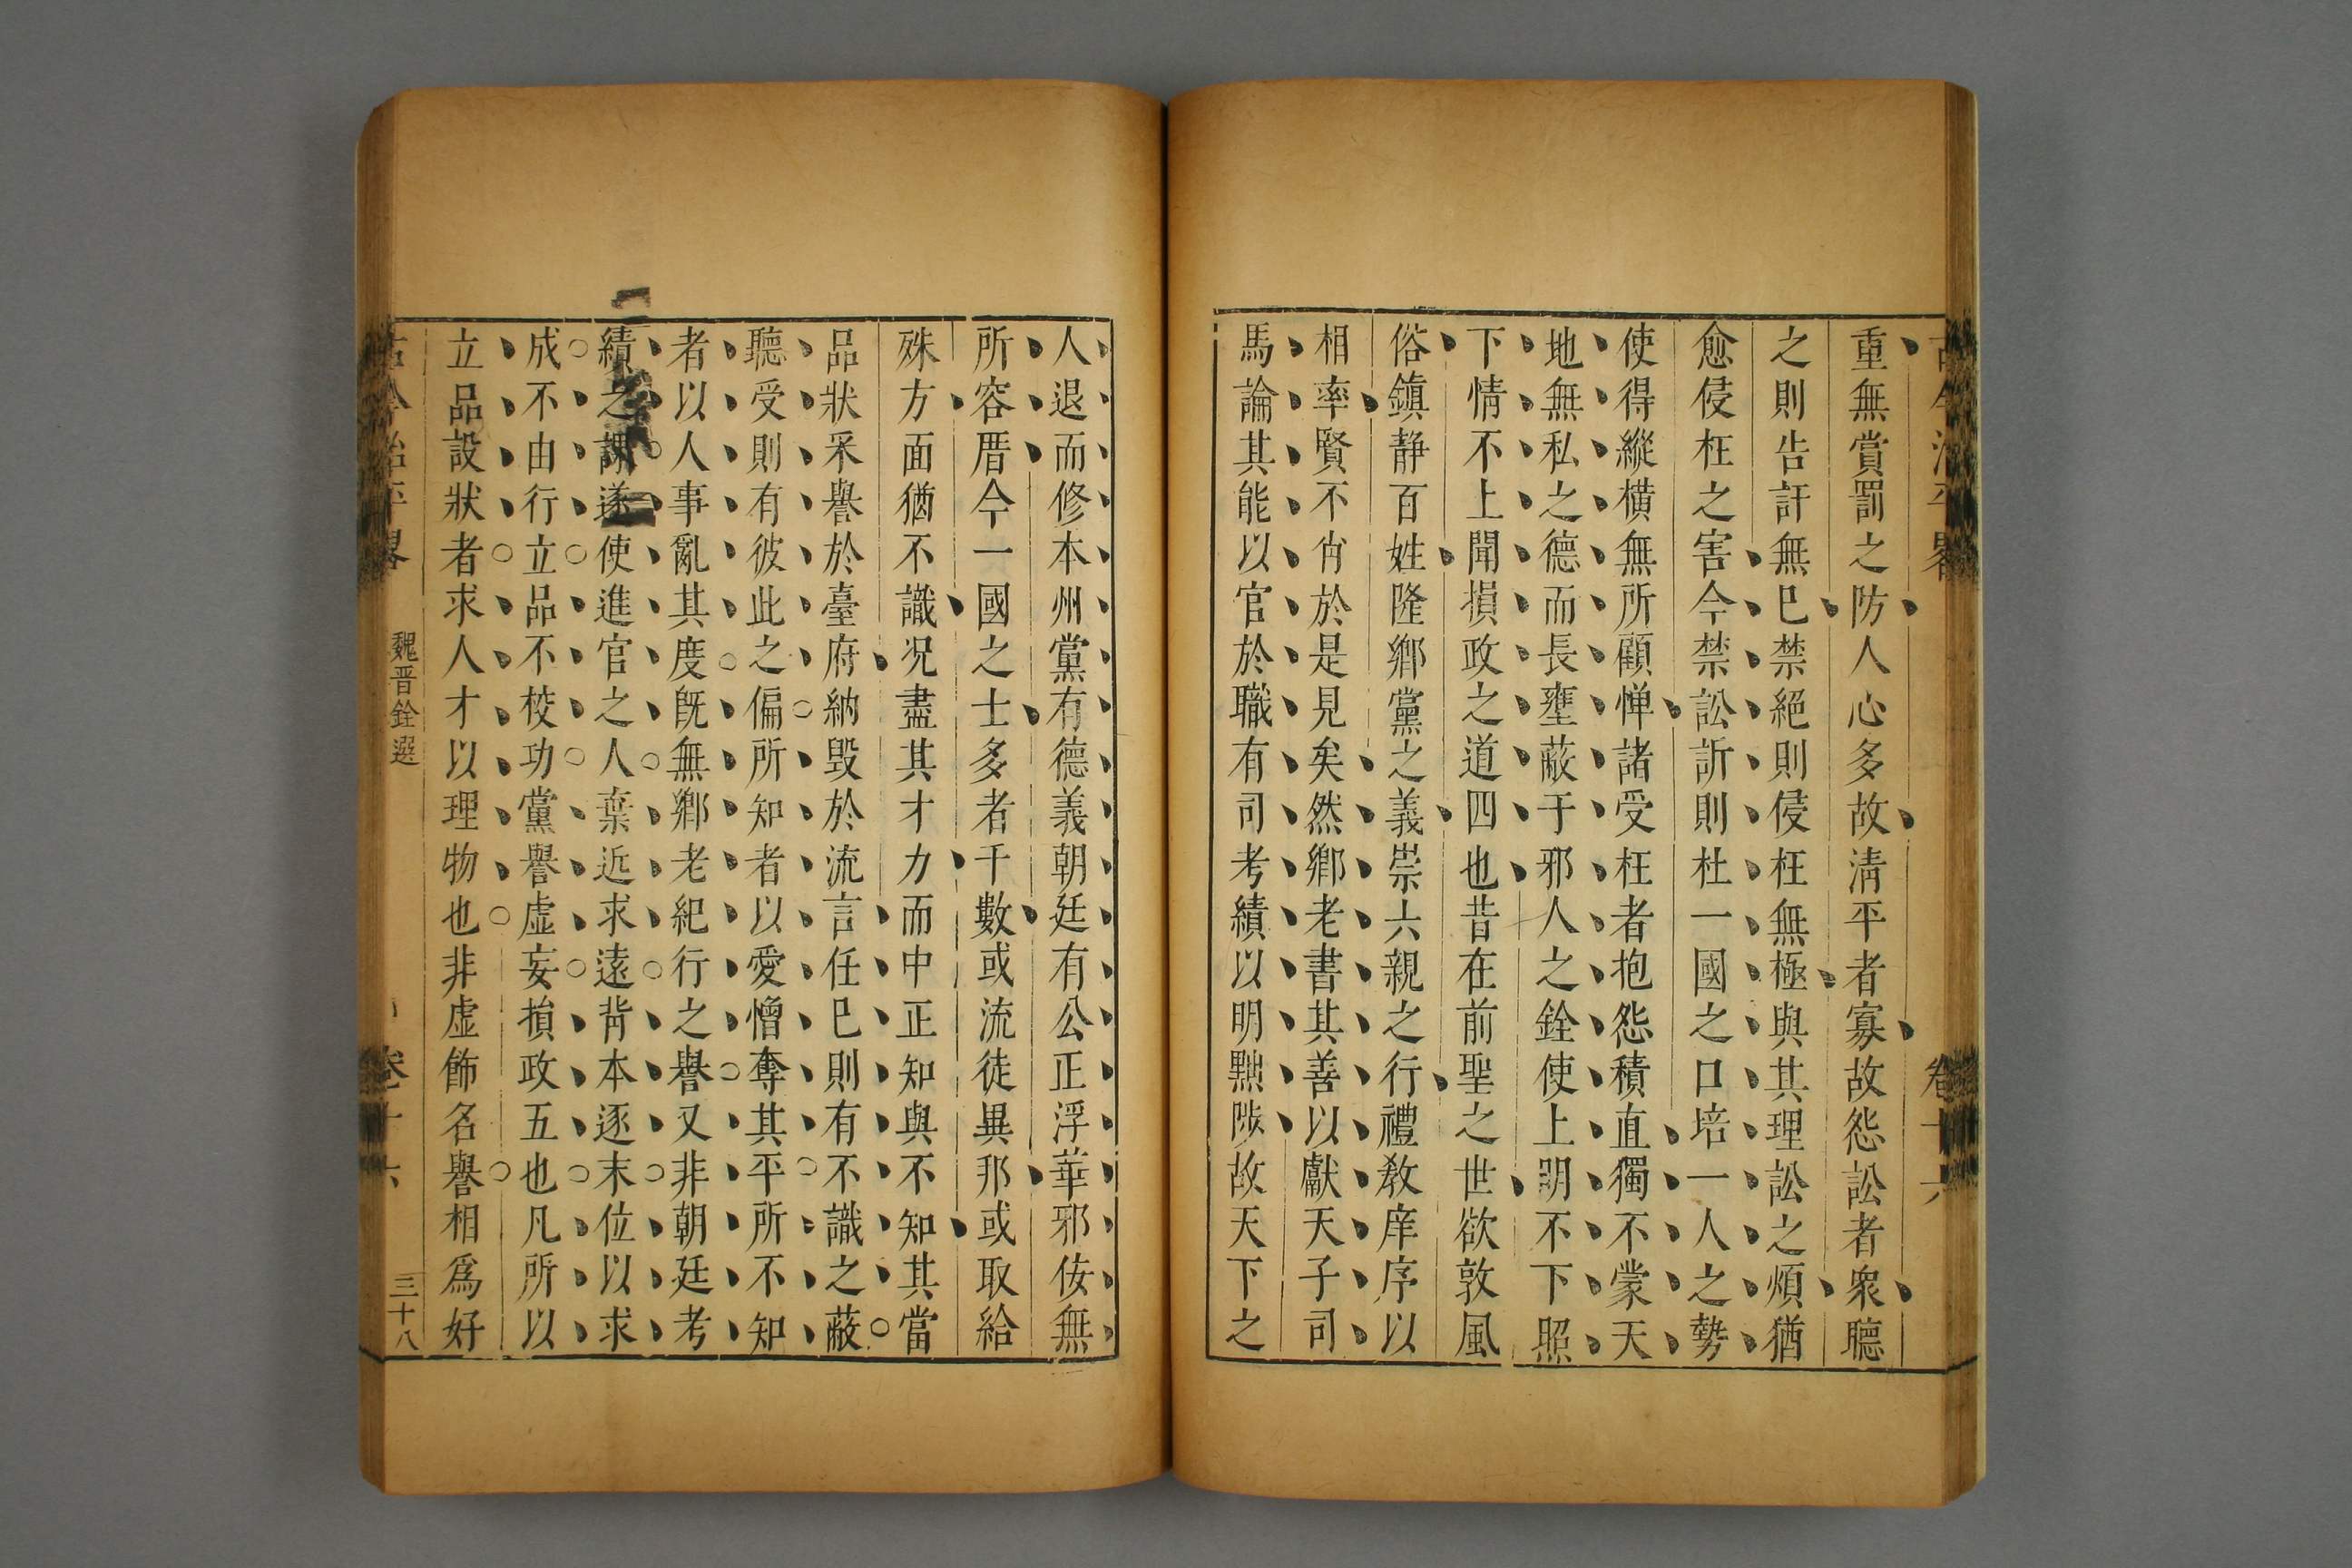 重無賞罰之防人心多故淸平者寡故怨訟者衆聽
之則告訐無已禁絕則侵枉無極與其理訟之煩猶
愈侵枉之害今禁訟訴則杜一國之口培一人之勢
使得縱橫無所顧憚諸受枉者抱怨積直獨不蒙天
地無私之德而長壅蔽于邪人之銓使上明不下照
下情不上聞損政之道四也昔在前聖之世欲敦風
俗鎮靜百姓隆鄉黨之義崇六親之行禮敎庠序以
相率賢不肖於是見矣然鄉老書其善以獻天子司
馬論其能以官於職有司考績以明黜陟故天下之
人退而修本州黨有德義朝廷有公正浮華邪佞無
所容厝今一國之士多者千數或流徒異邦或取給
殊方面猶不識况盡其才力而中正知與不知其當
品狀采譽於臺府納毀於流言任已則有不識之蔽
聽受則有彼此之偏所知者以愛憎奪其平所不知
者以人事亂其度旣無鄉老紀行之譽又非朝廷考
績之課遂使進官之人棄近求遠背本逐末位以求
成不由行立品不校功黨譽虛妄損政五也凡所以
立品設狀者求人才以理物也非虛飾名譽相爲好
古今治平畧
魏晉銓選
卷十六
三十八